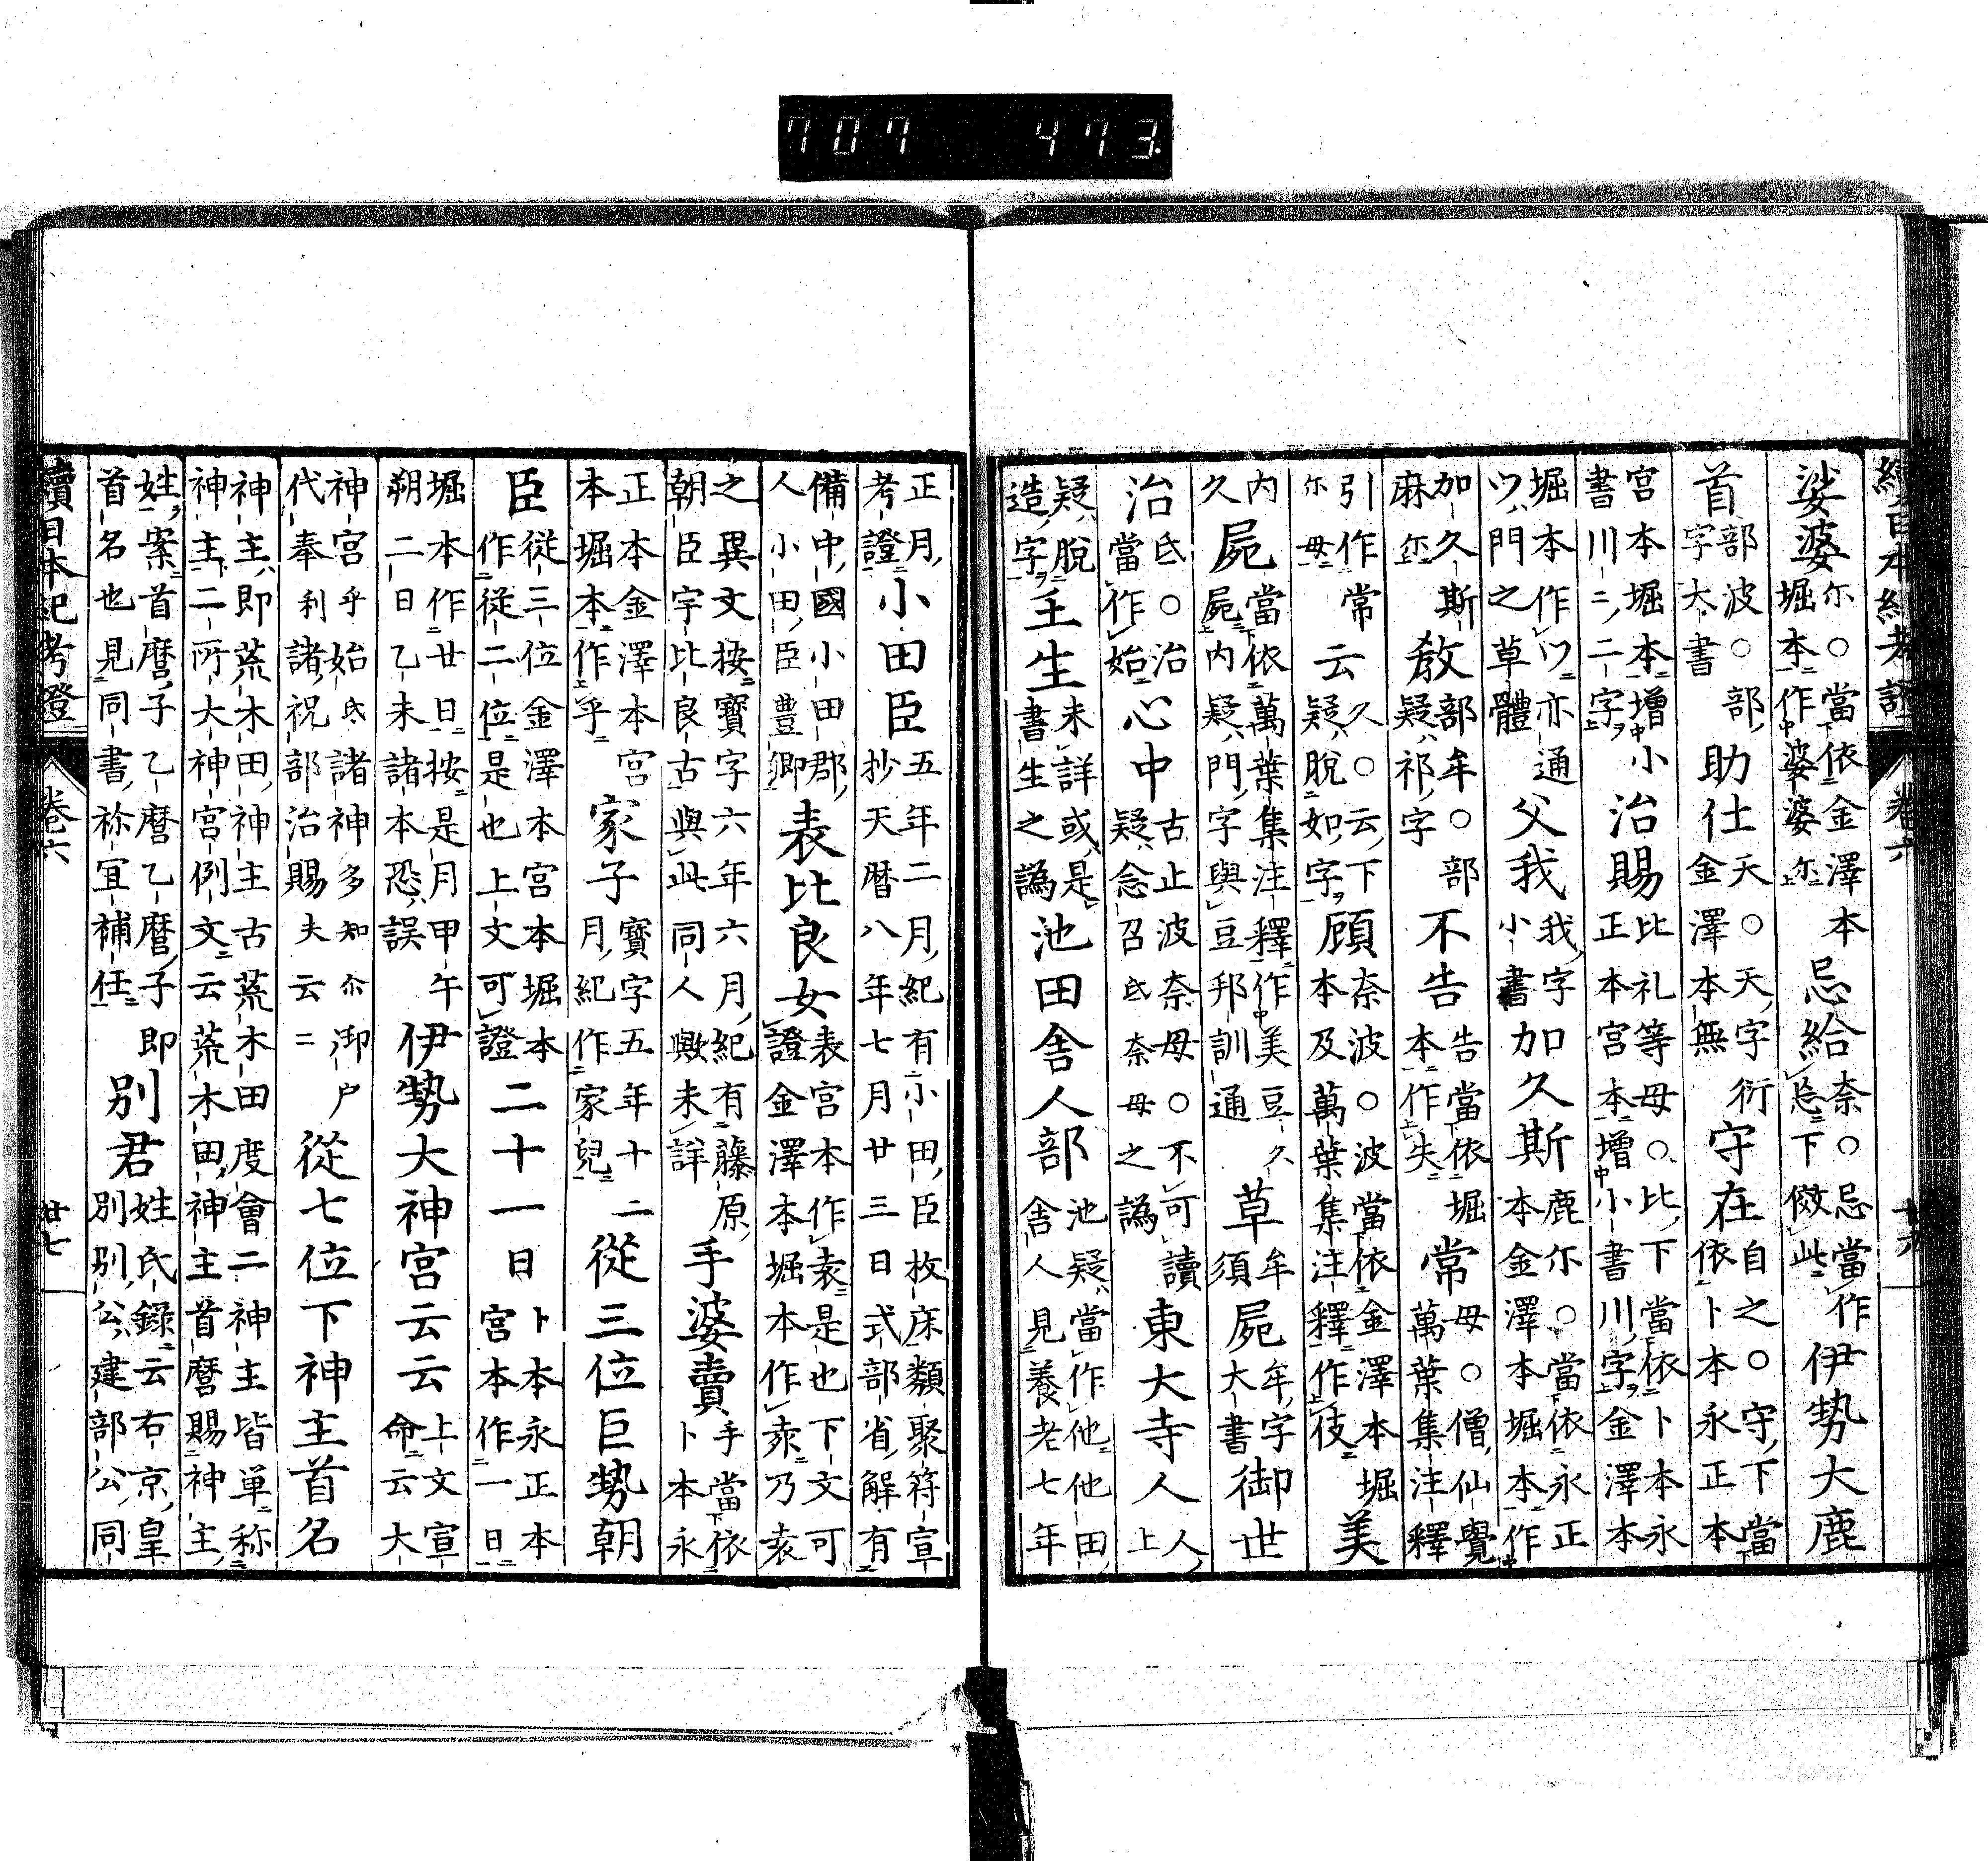 707 473.
續日本紀考證 卷六
娑婆尓○當依金澤本堀本作婆婆尓 忌給奈○忌當作忌下倣此 伊勢大鹿
首部波○部字大書 助仕天○天字衍金澤本無 守在自之○守下當依卜本永正本
宮本堀本增小書川二二字 治賜比礼等母○比下當依卜本永正本宮本增小書川字金澤本
堀本作ツ亦通ツ門之草體 父我我字小書 加久斯鹿尓○當依永正本金澤本堀本作
加久斯麻尓 教部牟○部疑祁字 不告告當依堀本作失 常母○僧仙覺萬葉集注釋
引作常云尓母 久○云下疑脫如字 顧奈波○波當依金澤本堀本及萬葉集注釋作伎 美
内久屍當依萬葉集注釋作美豆久屍内疑門字與豆邦訓通 草牟須屍牟字大書 御世
治氐○治當作始 心中古止波奈母○不可讀疑念召氐奈母之譌 東大寺人人上
疑脫造字 壬生未詳或是書生之譌 池田舍人部池疑當作他他田舍人見養老七年
正月考證 小田臣五年二月紀有小田臣枚床類聚符宣抄天曆八年七月廿三日式部省解有
備中國小田郡人小田臣豊卿 表比良女表宮本作袁是也下文可證金澤本堀本作㚑乃袁
之異文按寶字六年六月紀有藤原朝臣宇比良古與此同人歟未詳 手婆賣手當依卜本永
正本金澤本宮本堀本作乎 家子寶字五年十二月紀作家兒 從三位巨勢朝
臣從三位金澤本宮本堀本作從二位是也上文可證 二十一日卜本永正本宮本作一日
堀本作廿日按是月甲午朔二日乙未諸本恐誤 伊勢大神宮云云上文宣命云大
神宮乎始氐諸神多知尓御戸代奉利諸祝部治賜夫云云 從七位下神主首名
神主即荒木田神主古荒木田度會二神主皆單称神主二所大神宮例文云荒木田神主首麿賜神主
姓案首麿子乙麿乙麿子即首名也見同書祢宜補任 別君姓氏録云右京皇別別公建部公同
續日本紀考證 卷六 廿七